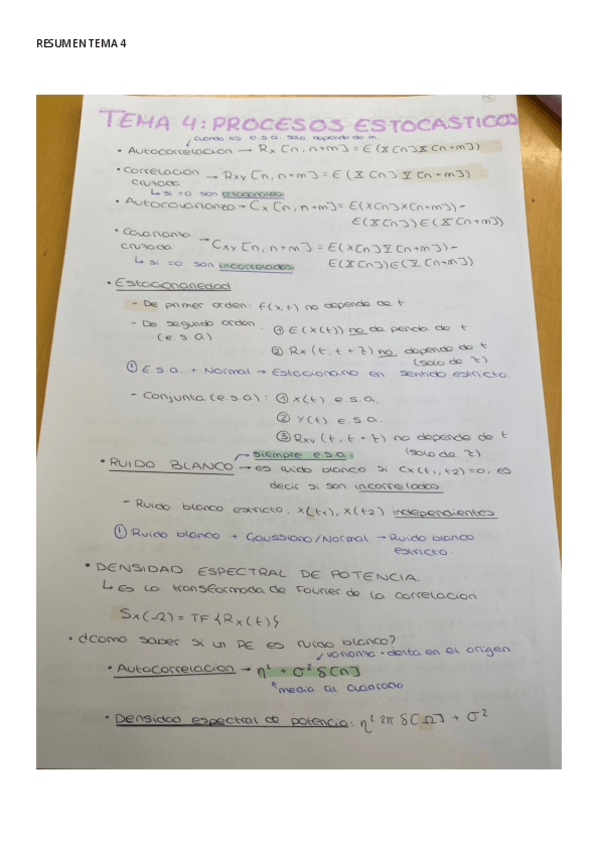 RESUMEN TEMA 4
TEMA 4: PROCESOS ESTOCASTICOS
cuando es e.s.a. solo depende de m.
• Autocorrelacion → Rx [n, n+m] = E(X[n]X[n+m])
• Correlacion cruzada → Rxy [n, n+m] = E(X[n] Y[n+m])
↳ si =0 son ortogonales
• Autocovarianza → Cx [n, n+m] = E(X[n]X[n+m]) -
E(X[n])E(X[n+m])
• Covarianza cruzada → Cxy [n, n+m] = E(X[n]Y[n+m]) -
↳ si =0 son incorrelados E(X[n])E(Y[n+m])
• Estacionariedad
- De primer orden: f(x,t) no depende de t
- De segundo orden: ① E(x(t)) no depende de t
(e.s.a) ② Rx (t, t+τ) no depende de t
(solo de τ)
! E.s.a. + Normal → Estacionario en sentido estricto.
- Conjunta (e.s.a): ① x(t) e.s.a.
② Y(t) e.s.a.
③ Rxy (t, t+τ) no depende de t
siempre e.s.a. (solo de τ)
• RUIDO BLANCO → es ruido blanco si Cx(t1,t2)=0, es
decir si son incorrelados.
- Ruido blanco estricto: x(t1), x(t2) independientes
! Ruido blanco + Gaussiano/Normal → Ruido blanco
estricto.
• DENSIDAD ESPECTRAL DE POTENCIA.
↳ Es la transformada de Fourier de la correlacion
Sx(Ω) = TF {Rx(t)}
• ¿Como saber si un PE es ruido blanco?
varianza • delta en el origen
• Autocorrelacion → η² + σ² δ[n]
media al cuadrado
• Densidad espectral de potencia: η² 2π δ[Ω] + σ²